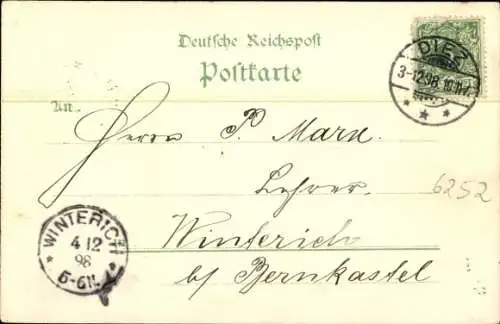 Deutsche Reichspost
Postkarte
DIEZ
3-12.98.
* * *
An
Herrn P. Marx
Lehrer
6252
Winterich
b/ Bernkastel
* WINTERICH *
4 12
98
5-6N.